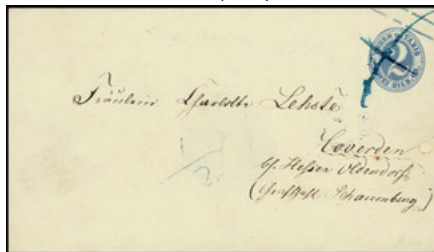 THURN U. TAXIS
2
Fräulein Charlotte Lehste
Coverden
b/ Hessen Oldendorf
(Grafschaft Schaumburg)
1/2